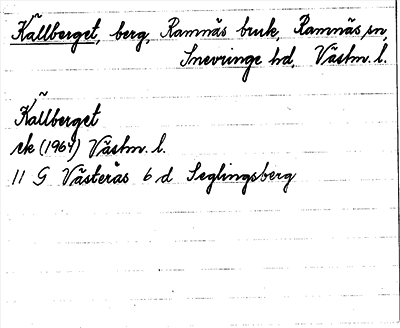 Källberget, berg, Ramnäs bruk, Ramnäs sn,
Snevringe hd, Västm. l.
Källberget
ek (1964) Västm. l.
11 G Västerås 6 d Seglingsberg